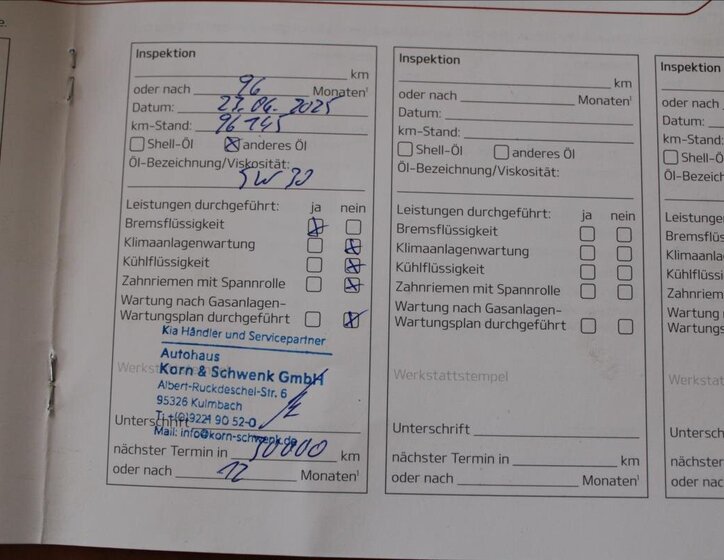 e.
Inspektion
km
oder nach 96 Monaten¹
Datum: 27.04.2025
km-Stand: 96145
Shell-Öl anderes Öl
Öl-Bezeichnung/Viskosität:
5W30
Leistungen durchgeführt: ja nein
Bremsflüssigkeit
Klimaanlagenwartung
Kühlflüssigkeit
Zahnriemen mit Spannrolle
Wartung nach Gasanlagen-
Wartungsplan durchgeführt
Kia Händler und Servicepartner
Autohaus
Korn & Schwenk GmbH
Albert-Ruckdeschel-Str. 6
95326 Kulmbach
T: +(0)9221 90 52-0
Mail: info@korn-schwenk.de
Unterschrift
nächster Termin in km
oder nach 12 Monaten¹
Inspektion
km
oder nach Monaten¹
Datum:
km-Stand:
Shell-Öl anderes Öl
Öl-Bezeichnung/Viskosität:
Leistungen durchgeführt: ja nein
Bremsflüssigkeit
Klimaanlagenwartung
Kühlflüssigkeit
Zahnriemen mit Spannrolle
Wartung nach Gasanlagen-
Wartungsplan durchgeführt
Werkstattstempel
Unterschrift
nächster Termin in km
oder nach Monaten¹
Inspektion
oder nach
Datum:
km-Stand:
Shell-Ö
Öl-Bezeich
Leistunge
Bremsflüs
Klimaanla
Kühlflüssi
Zahnriem
Wartung
Wartungs
Werkstatt
Untersch
nächster
oder nac